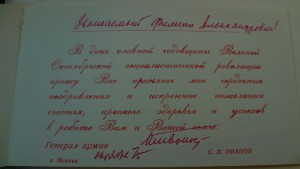 Уважаемый Филипп Александрович!
В день славной годовщины Великой
Октябрьской социалистической революции
прошу Вас принять мои сердечные
поздравления и искренние пожелания
счастья, крепкого здоровья и успехов
в работе Вам и Вашей семье.
Генерал армии
С. П. ИВАНОВ
г. Москва
ноябрь